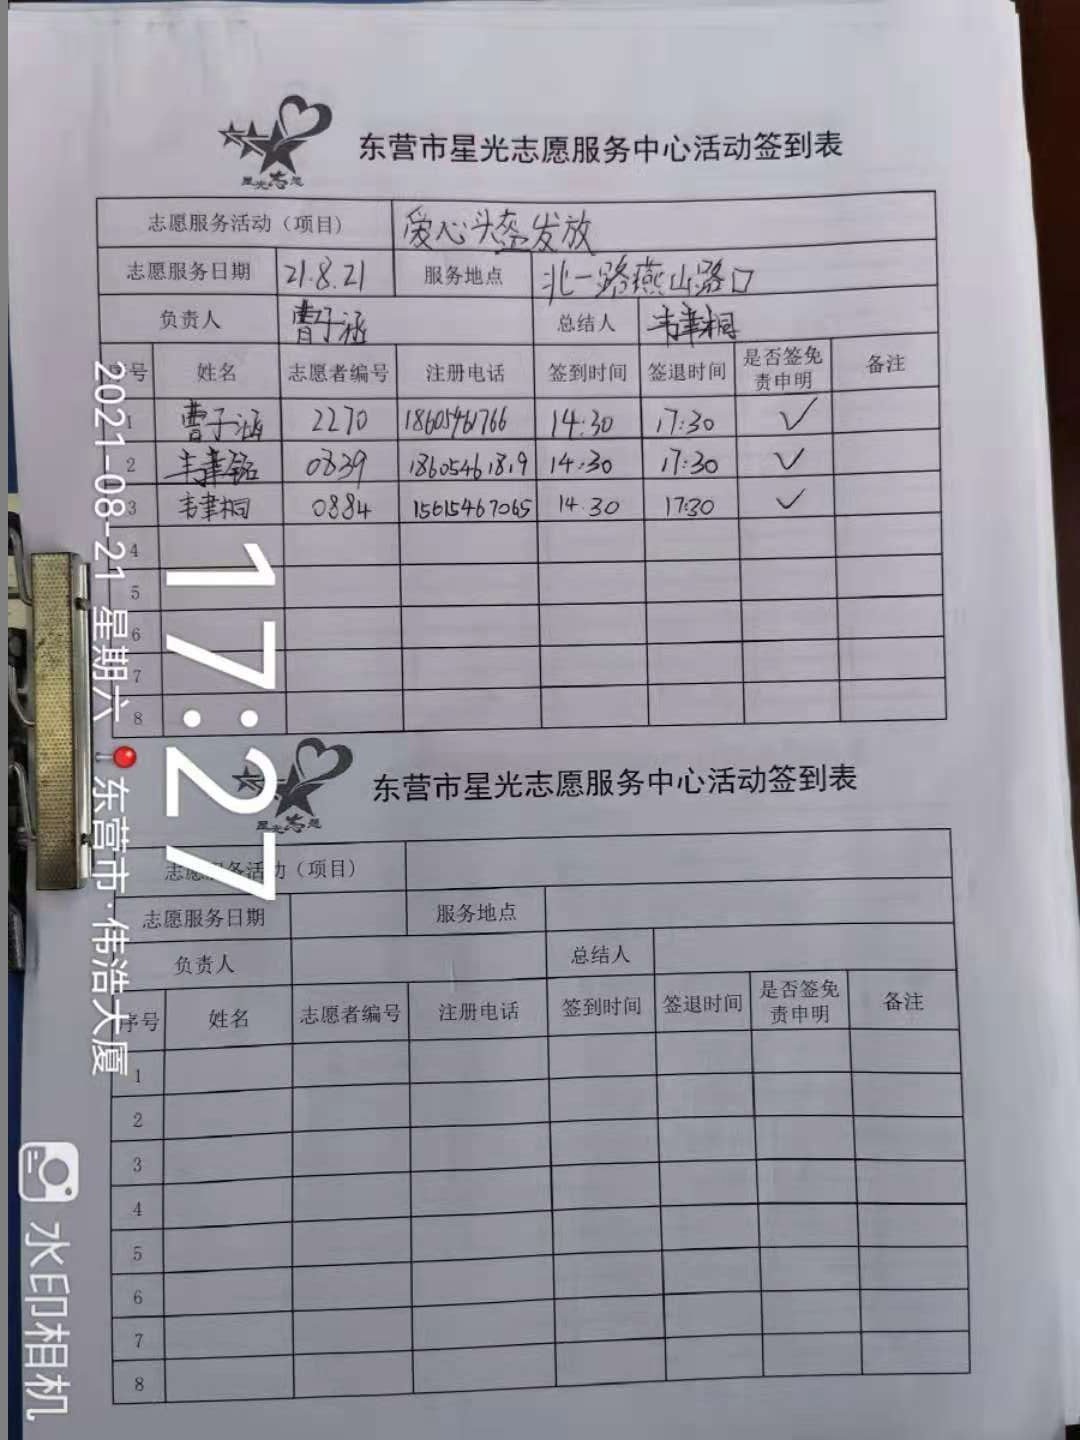 星光志愿
东营市星光志愿服务中心活动签到表
志愿服务活动（项目） 爱心头盔发放
志愿服务日期 21.8.21 服务地点 北一路燕山路口
负责人 曹子涵 总结人 韦聿桐
序号 姓名 志愿者编号 注册电话 签到时间 签退时间 是否签免责申明 备注
1 曹子涵 2270 18605461766 14:30 17:30 ✓
2 韦聿铭 0839 18605461819 14:30 17:30 ✓
3 韦聿桐 0884 15615467065 14.30 17:30 ✓
4
5
6
7
8
星光志愿
东营市星光志愿服务中心活动签到表
志愿服务活动（项目）
志愿服务日期 服务地点
负责人 总结人
序号 姓名 志愿者编号 注册电话 签到时间 签退时间 是否签免责申明 备注
1
2
3
4
5
6
7
8
17:27
2021-08-21 星期六 东营市·伟浩大厦
水印相机